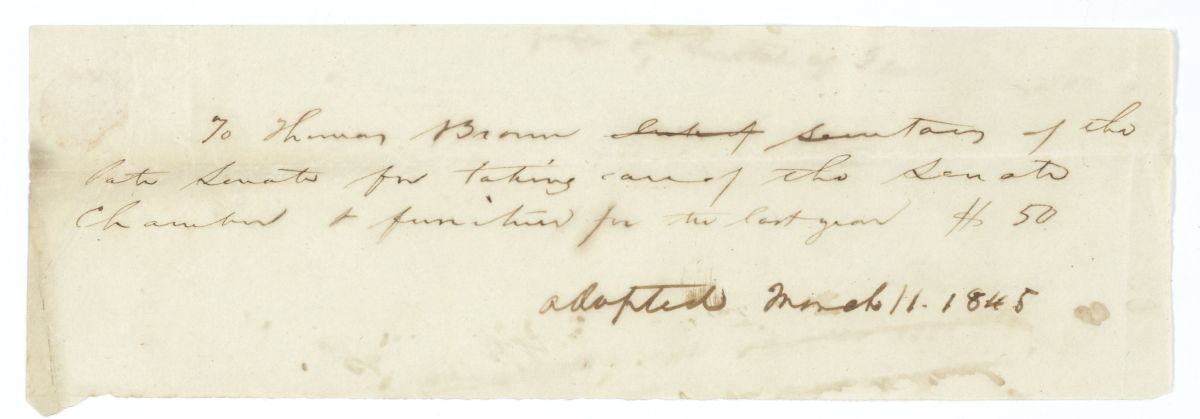 To Thomas Brown secretary of the
late Senate for taking care of the Senate
Chamber & furniture for the last year $ 50
adopted March 11. 1845